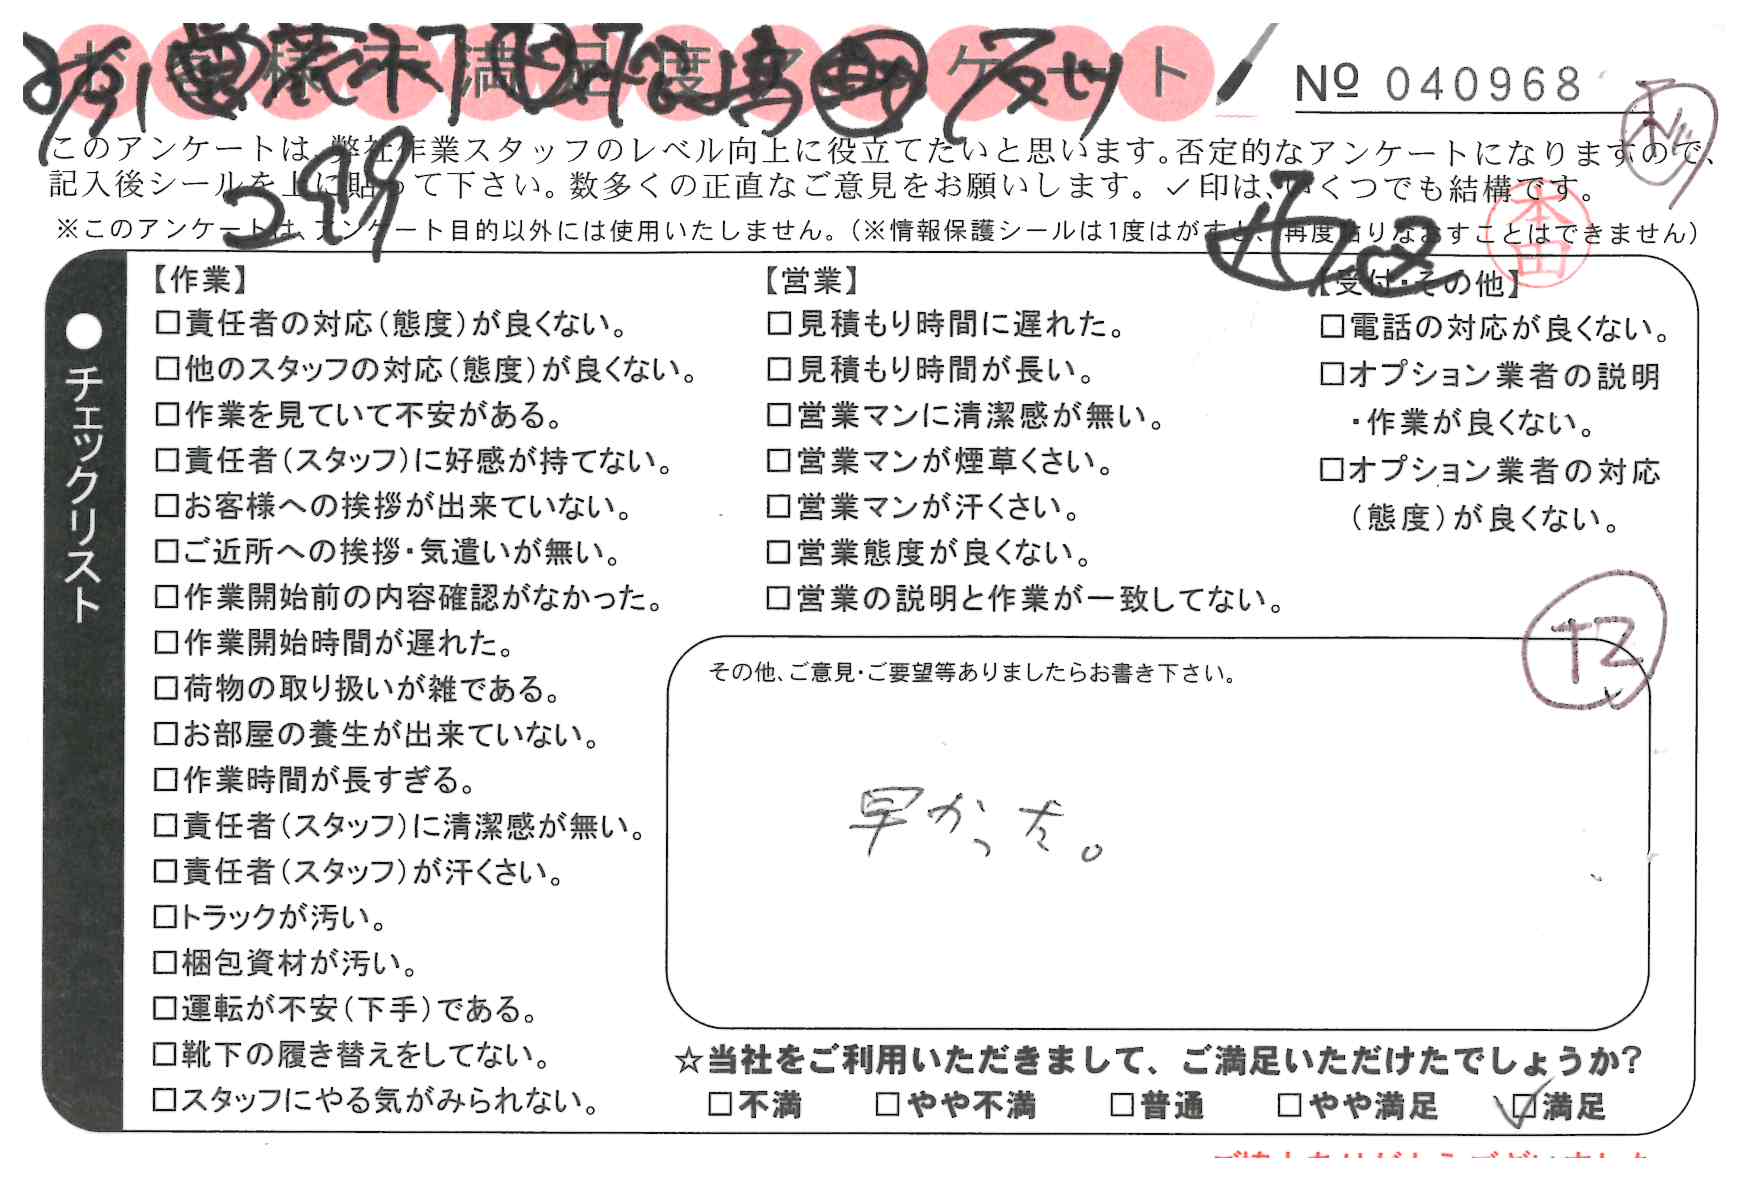 お客様不満足度アンケート
№ 040968
このアンケートは、弊社作業スタッフのレベル向上に役立てたいと思います。否定的なアンケートになりますので、
記入後シールを上に貼って下さい。数多くの正直なご意見をお願いします。✓印は、いくつでも結構です。
※このアンケートは、アンケート目的以外には使用いたしません。(※情報保護シールは1度はがすと、再度貼りなおすことはできません)
299
本田
●チェックリスト
【作業】
□責任者の対応(態度)が良くない。
□他のスタッフの対応(態度)が良くない。
□作業を見ていて不安がある。
□責任者(スタッフ)に好感が持てない。
□お客様への挨拶が出来ていない。
□ご近所への挨拶・気遣いが無い。
□作業開始前の内容確認がなかった。
□作業開始時間が遅れた。
□荷物の取り扱いが雑である。
□お部屋の養生が出来ていない。
□作業時間が長すぎる。
□責任者(スタッフ)に清潔感が無い。
□責任者(スタッフ)が汗くさい。
□トラックが汚い。
□梱包資材が汚い。
□運転が不安(下手)である。
□靴下の履き替えをしてない。
□スタッフにやる気がみられない。
【営業】
□見積もり時間に遅れた。
□見積もり時間が長い。
□営業マンに清潔感が無い。
□営業マンが煙草くさい。
□営業マンが汗くさい。
□営業態度が良くない。
□営業の説明と作業が一致してない。
【受付・その他】
□電話の対応が良くない。
□オプション業者の説明
・作業が良くない。
□オプション業者の対応
(態度)が良くない。
その他、ご意見・ご要望等ありましたらお書き下さい。
早かった。
☆当社をご利用いただきまして、ご満足いただけたでしょうか?
□不満 □やや不満 □普通 □やや満足 ☑満足